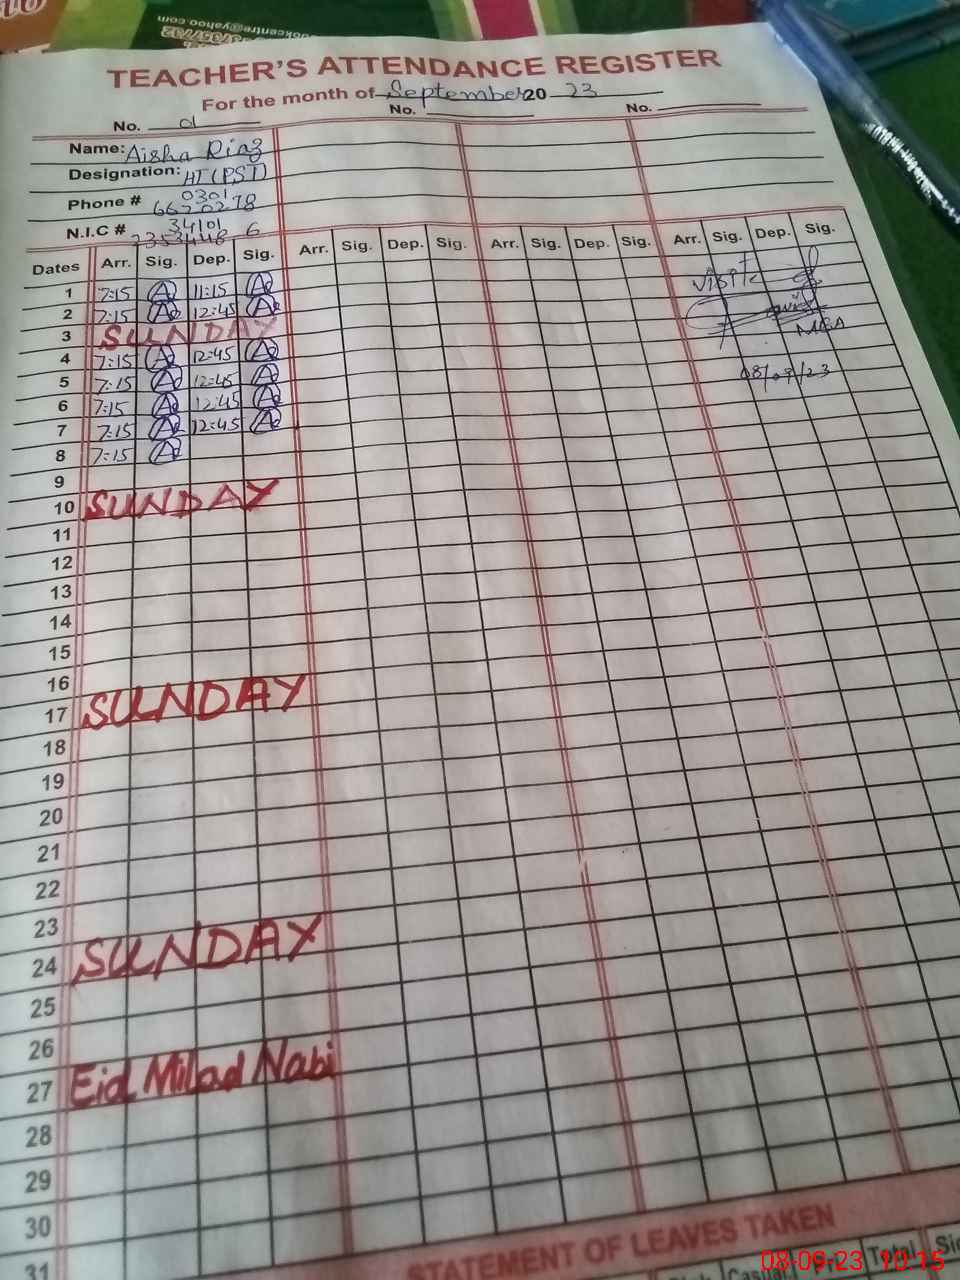 ookcentre@yahoo.com
TEACHER'S ATTENDANCE REGISTER
For the month of September 20 23
No. 01 No. No.
Name: Aisha Riaz
Designation: HT (PST)
Phone # 0301
6620278
N.I.C # 34101
2353448 6
Dates Arr. Sig. Dep. Sig. Arr. Sig. Dep. Sig. Arr. Sig. Dep. Sig. Arr. Sig. Dep. Sig.
1 7:15 11:15 Visit
2 7:15 12:45
3 SUNDAY MEA
4 7:15 12:45
5 7:15 12:45 08/09/23
6 7:15 12:45
7 7:15 12:45
8 7:15
9
10 SUNDAY
11
12
13
14
15
16
17 SUNDAY
18
19
20
21
22
23
24 SUNDAY
25
26
27 Eid Milad Nabi
28
29
30
31
STATEMENT OF LEAVES TAKEN
Casual Total
08-09-23 10:15